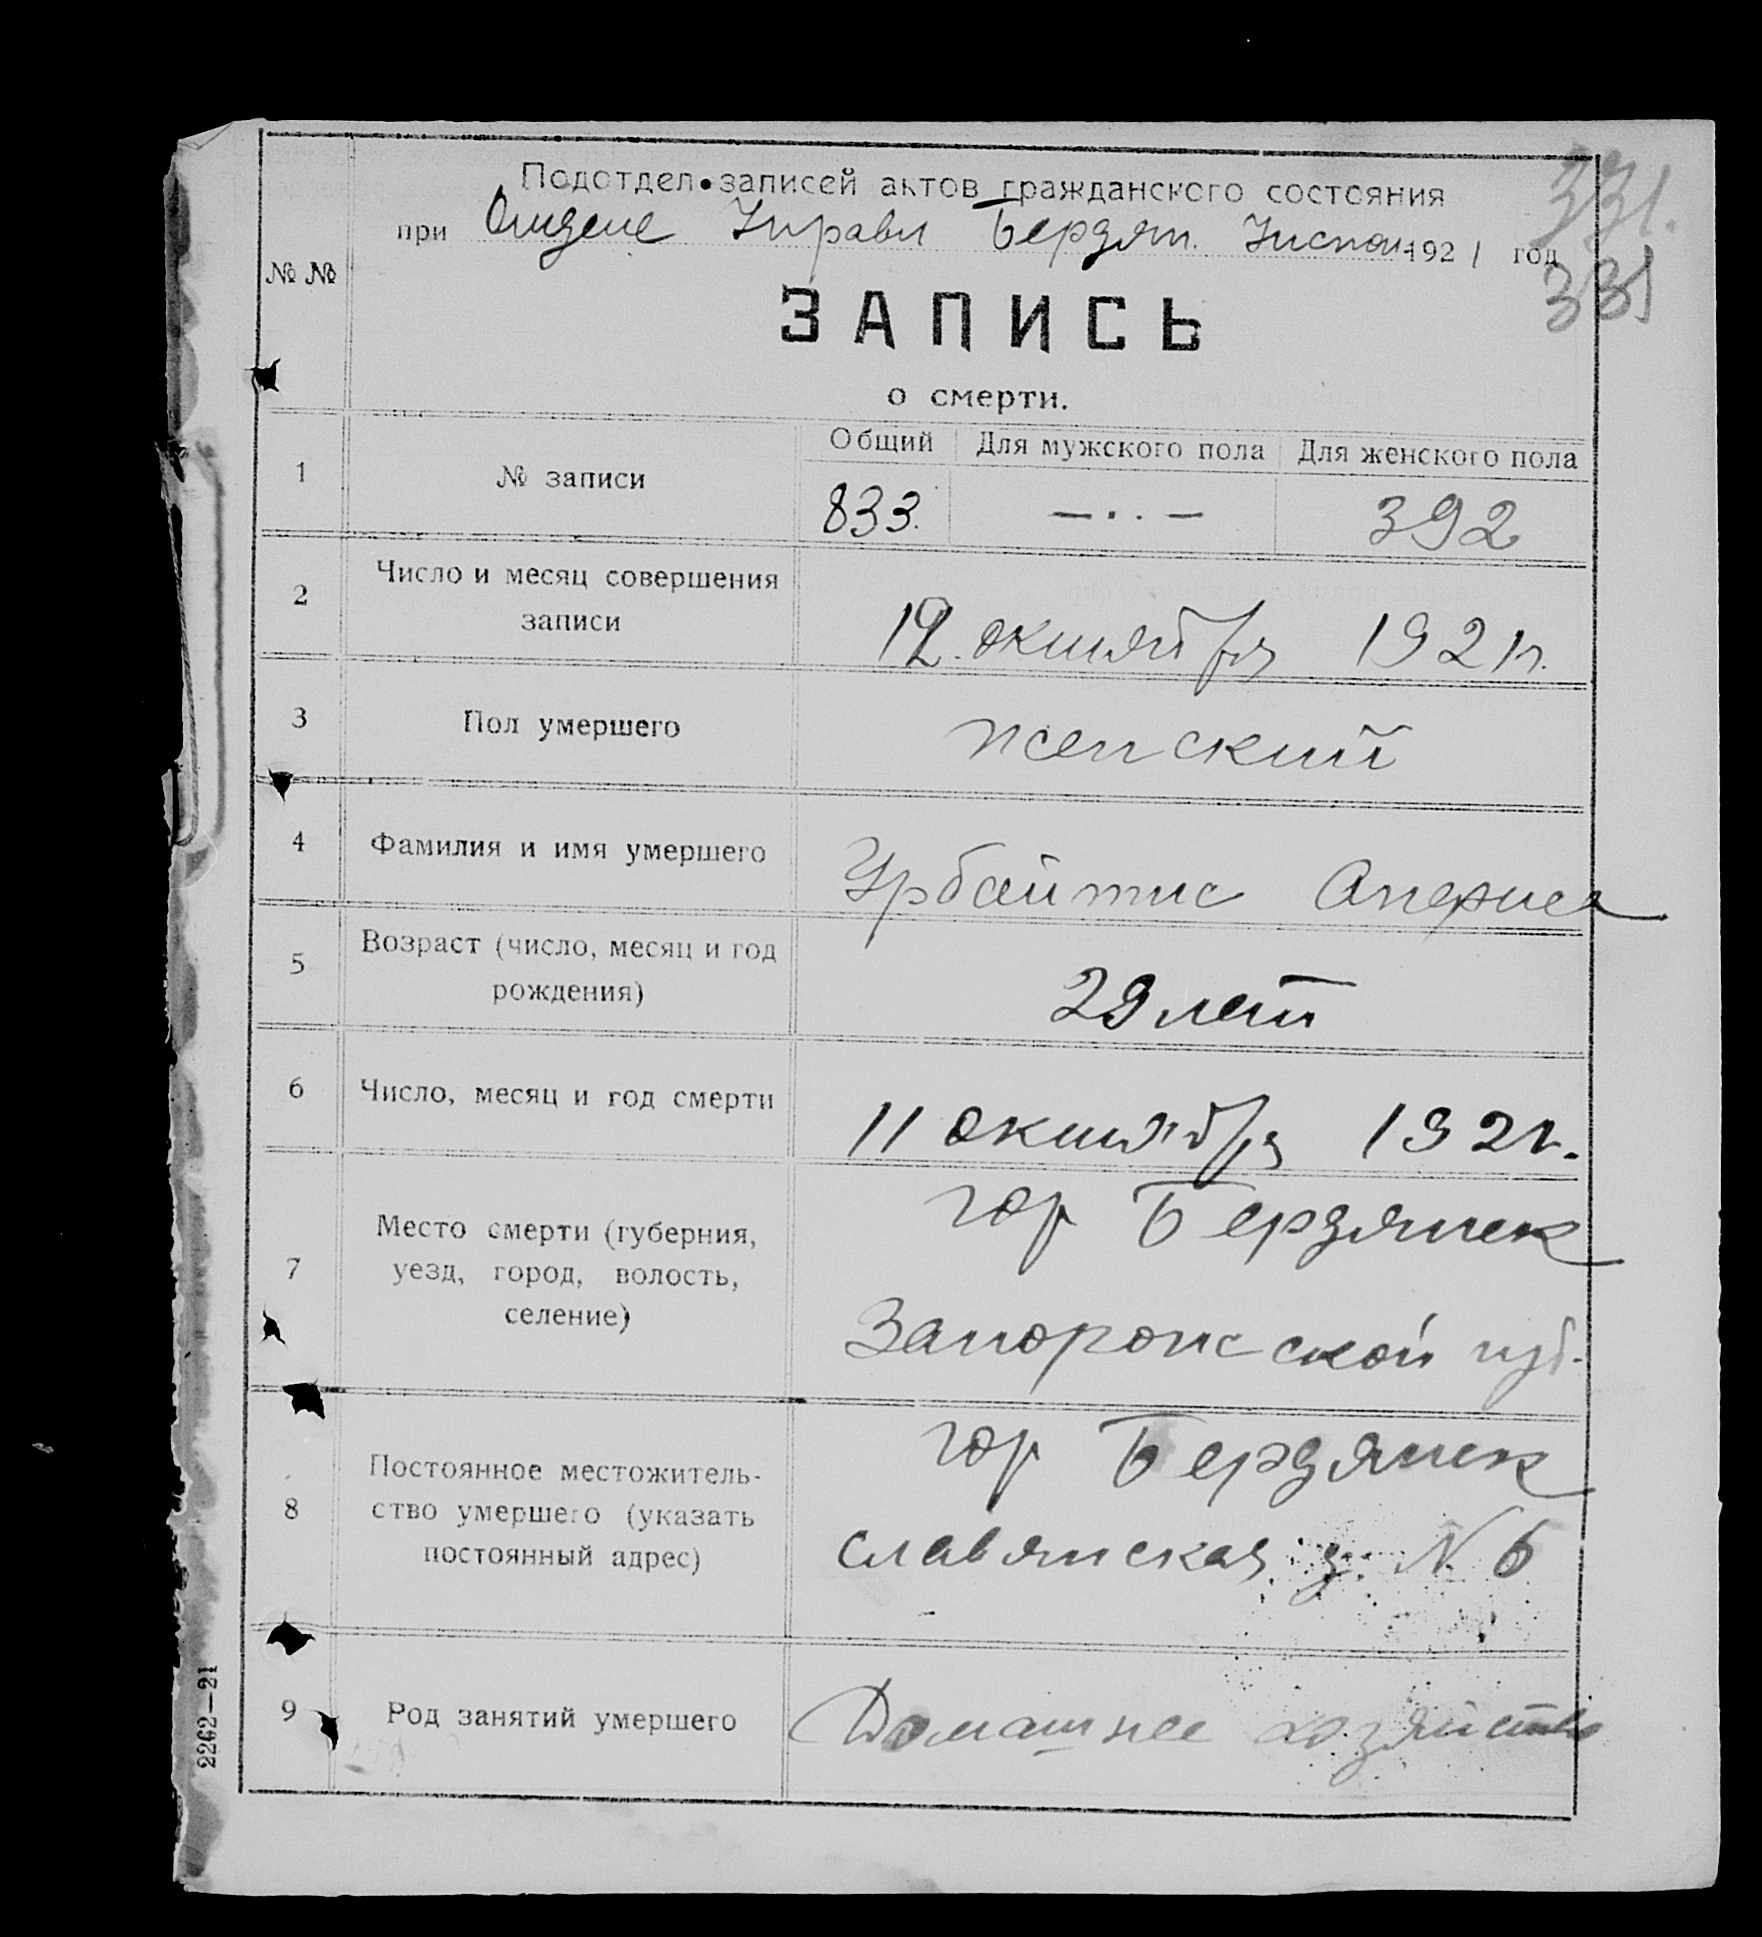 331.
331
Подотдел записей актов гражданского состояния
при Отделе Управл Бердян. Уиспол 1921 год
№ №
ЗАПИСЬ
о смерти.
1 № записи
Общий Для мужского пола Для женского пола
833. — · · — 392
2 Число и месяц совершения
записи
12. октября 1921 г.
3 Пол умершего женский
4 Фамилия и имя умершего Урбайтис
5 Возраст (число, месяц и год
рождения)
29 лет
6 Число, месяц и год смерти 11 октября 192 г.
7 Место смерти (губерния,
уезд, город, волость,
селение)
гор Бердянск
Запорожской губ.
8 Постоянное местожитель-
ство умершего (указать
постоянный адрес)
гор Бердянск
Славянская д. N 6
9 Род занятий умершего Домашнее хозяйство
2262—21